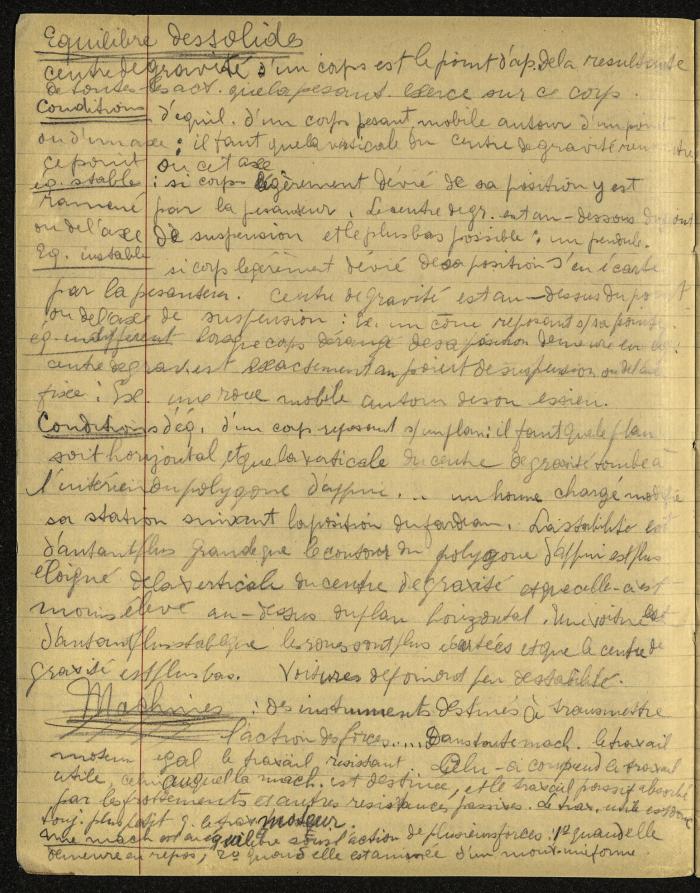 Equilibre des solides
centre de gravité d'un corps est le point d'ap. de la resultante
de toutes les act. que la pesant. exerce sur ce corps.
Conditions d'équil. d'un corps pesant mobile autour d'un point
ou d'un axe : il faut que la verticale du centre de gravité rencontre
ce point ou cet axe
eq. stable : si corps légèrement dévié de sa position y est
ramené par la pesanteur. Le centre de gr. est au-dessous du point
ou de l'axe de suspension et le plus bas possible : un pendule.
Eq. instable si corps legèrement dévié de sa position s'en écarte
par la pesanteur. Centre de gravité est au-dessus du point
ou de l'axe de suspension : Ex. un cône reposant s/ sa pointe
éq. indifférent lorsque corps dérangé de sa position demeure en eq.
centre de grav. est exactement au point de suspension ou de l'axe
fixe : Ex une roue mobile autour de son essieu.
Conditions d'éq. d'un corps reposant s/ un plan : il faut que le plan
soit horizontal, et que la verticale du centre de gravité tombe à
l'intérieur du polygone d'appui... un homme chargé modifie
sa station suivant la position du fardeau. La stabilité est
d'autant plus grande que le contour du polygone d'appui est plus
éloigné de la verticale du centre de gravité et que celle-ci est
moins élevé au-dessus du plan horizontal. Une voiture est
d'autant plus stable que les roues sont plus écartées et que le centre de
gravité est plus bas. Voitures de foin ont peu de stabilité.
Machines : des instruments destinés à transmettre
l'action des forces.... Dans toute mach. le travail
moteur egal le travail resistant. Celui-ci comprend le travail
utile, celui auquel la mach. est destinée, et le travail passif absorbé
par les frottements et autres resistances passives. Le trav. utile est donc
touj. plus petit q. le trav. moteur.
Une mach est en équilibre sous l'action de plusieurs forces : 1° quand elle
demeure en repos, 2° quand elle est animée d'un mouv. uniforme.